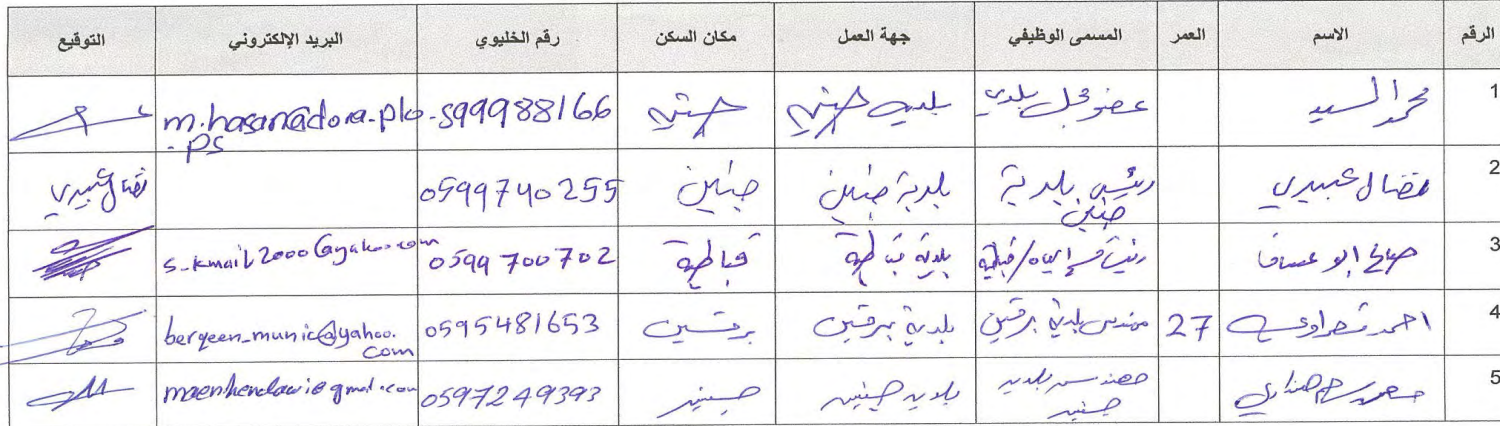 الرقم الاسم العمر المسمى الوظيفي جهة العمل مكان السكن رقم الخليوي البريد الإلكتروني التوقيع
1 محمد السيد عضو مجلس بلدي بلدية 599988166
2 نضال عبيدي رئيس بلدية جنين بلدية جنين جنين 0599740255 نضال عبيدي
3 صالح ابو عساف بلدية قباطية قباطية 0599700702 s-kmail2000@yahoo.com
4 احمد 27 مهندس بلدية برقين بلدية برقين برقين 0595481653 berqeen_munic@yahoo.
com
5 مهندس بلدية جنين بلدية جنين جنين 0597249393 maenhendawi@gmail.com